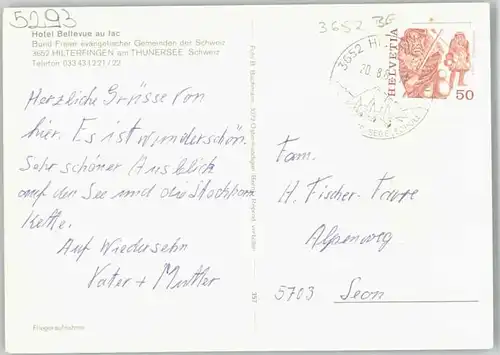 5293
3652 BE
Hotel Bellevue au lac
Bund Freier evangelischer Gemeinden der Schweiz
3652 HILTERFINGEN am THUNERSEE Schweiz
Telefon 033 43 12 21 / 22
3652 HI
20.8.
HELVETIA
50
Herzliche Grüsse von
hier. Es ist wunderschön.
Sehr schöner Ausblick
auf den See und die Stockhorn
Kette.
Auf Wiedersehn
Vater + Mutter
Fam.
H. Fischer-
Alpenweg
5703 Seon
Fliegeraufnahme